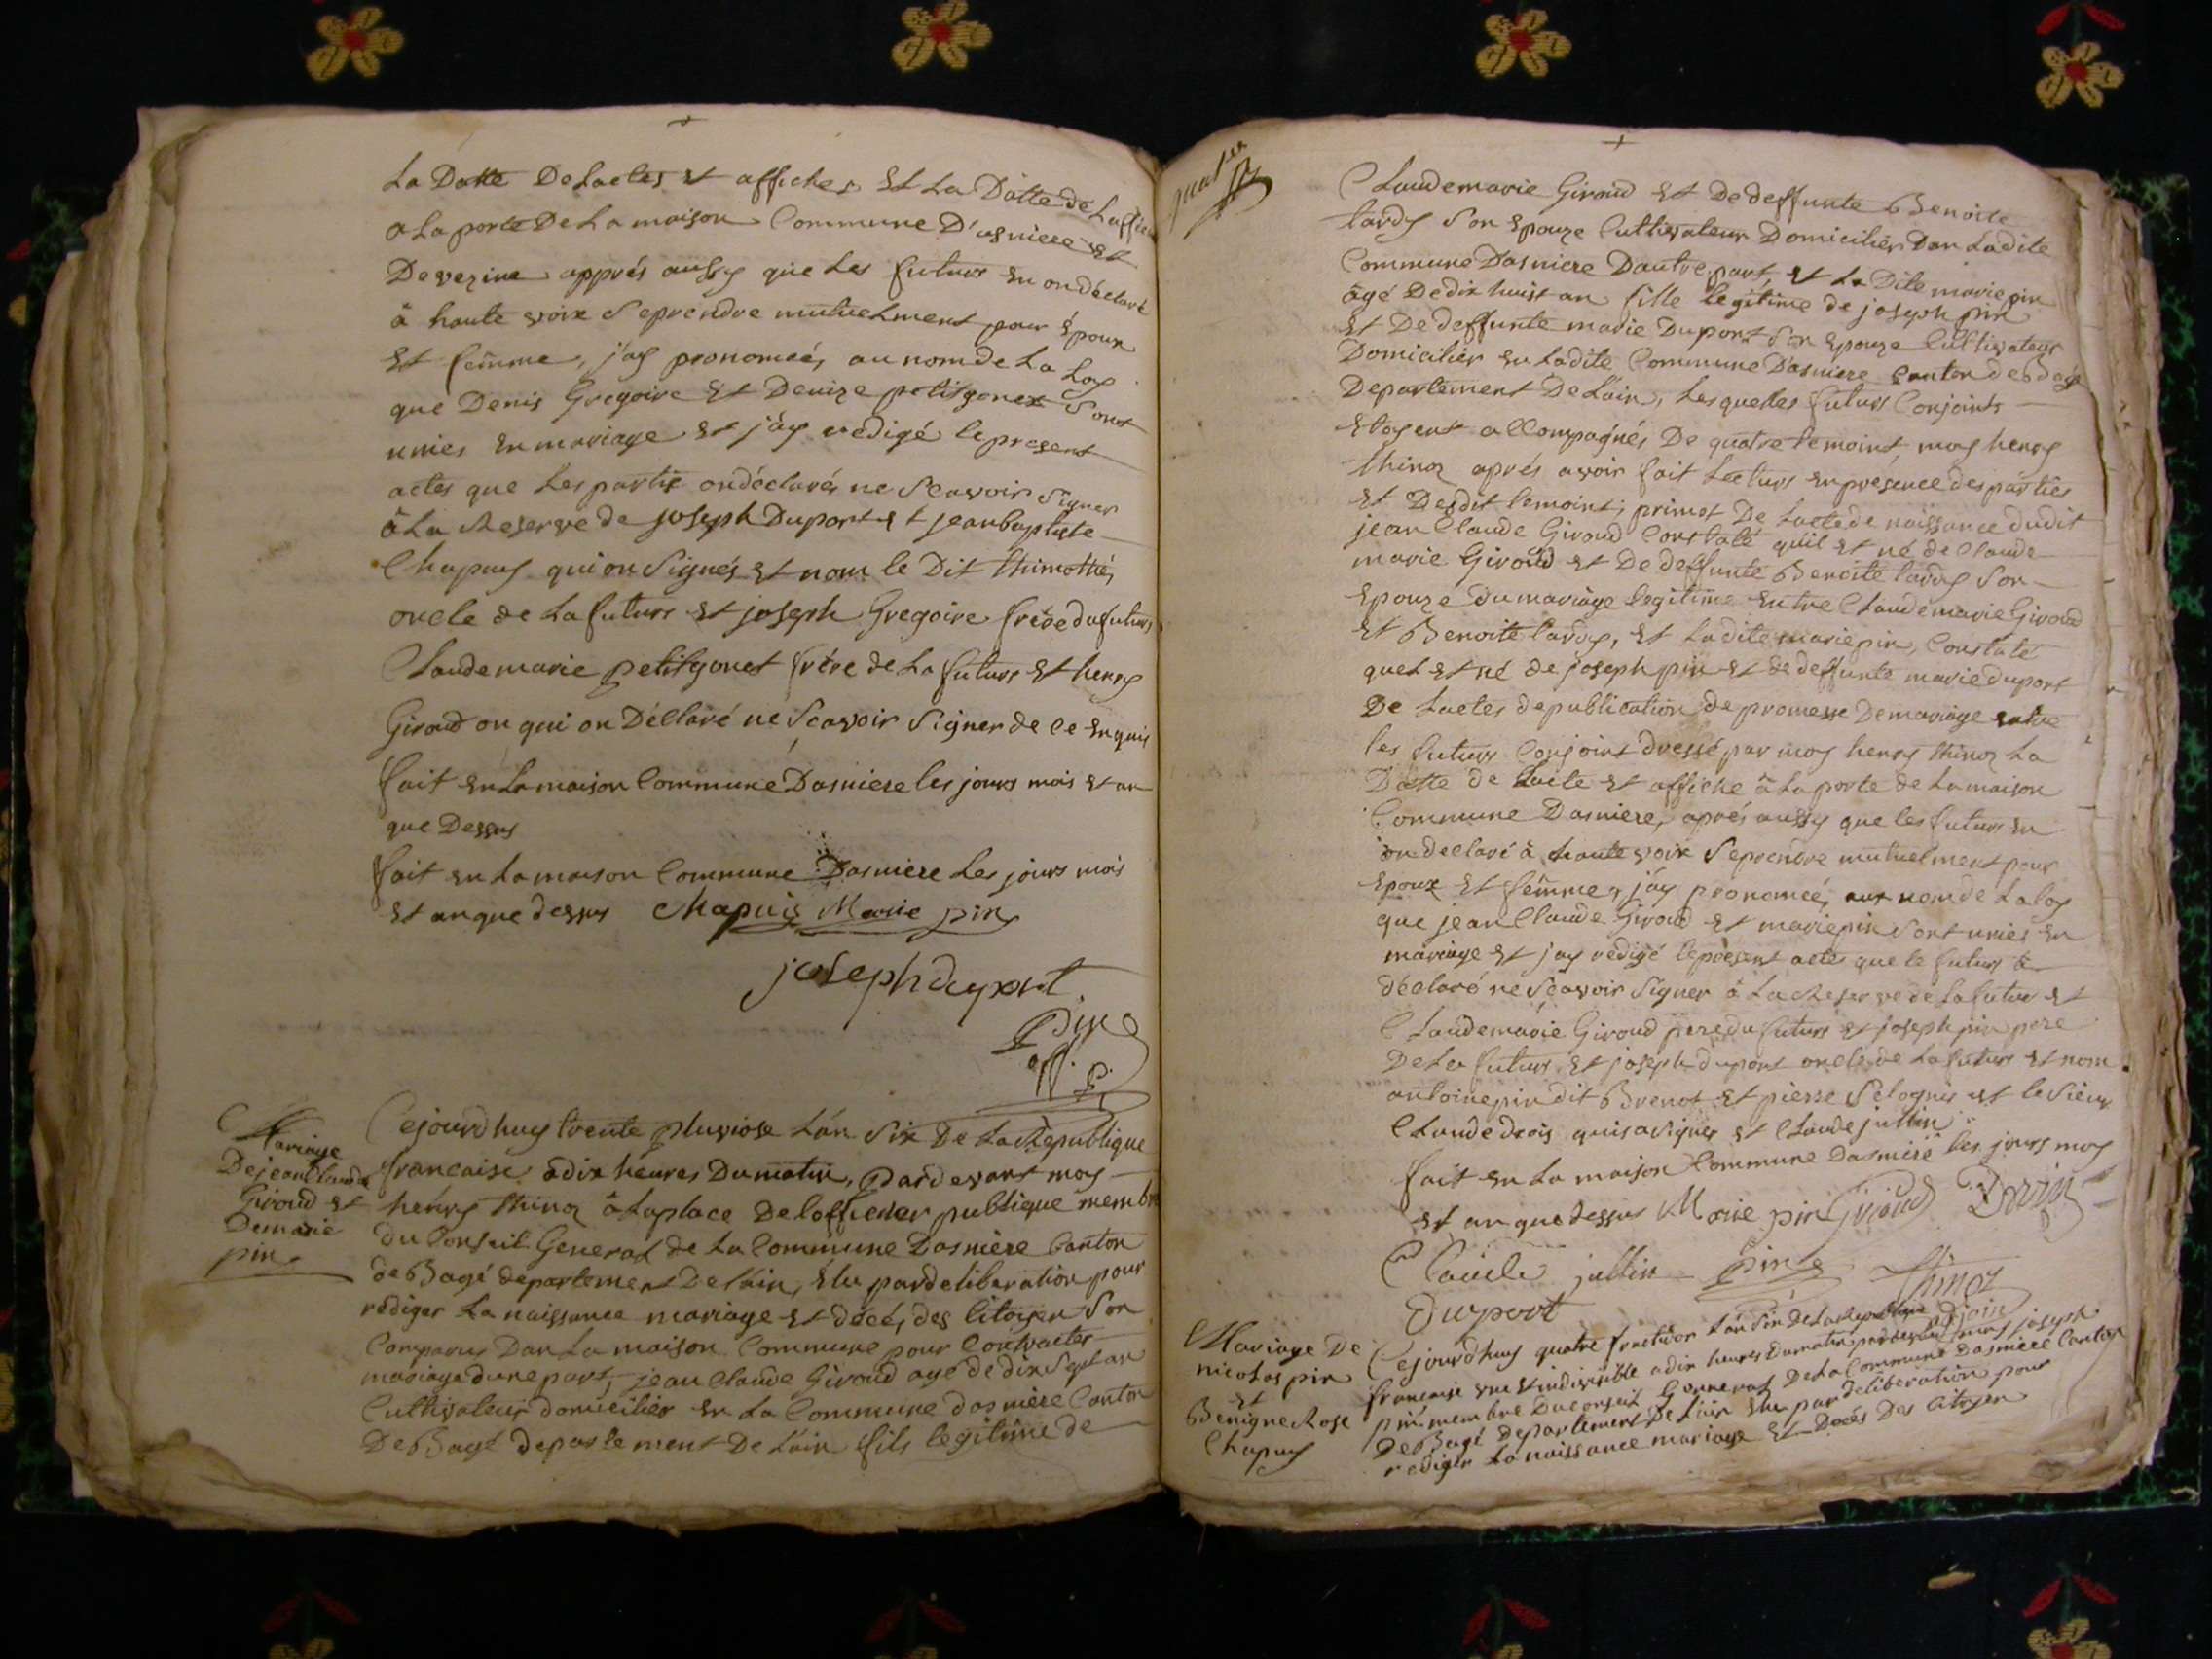 La Datte De Lactes et affiches Et La Datte de Laffiche
a La porte De La maison Commune D'asniere et
De vezine apprés aussy que Les futurs en on déclaré
à haute voix Se prendre mutuelment pour Époux
Et femme, j'ay prononceé, au nom de La Loy
que Denis Gregoire Et Denize petitjonet Sont
unies en mariage et j'ay redigé le present
actes que Les partie on déclarés ne Scavoir Signer
à La Reserve de joseph Duport et jean baptiste
Chapuy qui on Signés Et nom le Dit thimothé,
oncle de La future et joseph Gregoire frère du futurs
Claude marie petitjonet frère de La futurs Et henry
Giroud on qui on Déclaré ne Scavoir Signer de Ce enquis
fait en La maison Commune Dasniere les jours mois et an
que Dessus
fait en La maison Commune Dasniere Les jours mois
et an que dessus Chapuis Marie pin
joseph duport
Pin
off. P.
Mariage
De jean Claude
Giroud et
De marie
pin
Cejourdhuy trente pluviose L'an Six De La Republique
francaise à dix heures Du matin, Pardevant moy
henry thinoz à La place De Lofficier publique membre
du Conseil General de La Commune Dasniere Canton
de Bagé departement De L'ain, Élu par deliberation pour
rediger La naissance mariage et décés, des Citoyen Son
Comparus Dan La maison Commune pour Contracter
mariage dune part, jean Claude Giroud agé de dix Sept an
Cultivateur domicilier en La Commune dasniere Canton
De Bagé departement De L'ain fils legitime de
Claude marie Giroud Et De deffunte Benoite
tardy Son Epouze Cultivateur Domiciliés Dan Ladite
Commune Dasniere Dautre part, et La Dite marie pin
âgé De dix huit an fille legitime de joseph pin
Et De deffunte marie Duport Son Epouze Cultivateur
Domicilier en Ladite Commune Dasniere Canton de Bagé
Departement De L'ain, Lesquelles futurs Conjoints
Etoyent acCompagnés De quatre temoint, moy henry
thinoz aprés avoir fait Lecture en présence des parties
et Desdit temoint; primot De Lacte de naissance dudit
jean Claude Giroud Constaté qu'il et né de Claude
marie Giroud et De deffunte Benoite tardy Son
Epouze du mariage legitime entre Claude marie Giroud
et Benoite tardy, et Ladite marie pin, Constaté
quel et né de joseph pin et de deffunte marie duport
De Lactes de publication de promesse De mariage entre
les futurs Conjoint dressé par moy henry thinoz La
Datte de Lacte et affiche à La porte de La maison
Commune Dasniere, aprés aussy que les futurs en
on declaré à haute voix Se prendre mutuelment pour
Epoux Et femme, j'ay prononceé, aux nom de La loy
que jean Claude Giroud et marie pin Sont unies en
mariage et j'ay redigé le present actes que le futurs à
déclaré ne Scavoir Signer à La Reserve de La futur et
Claude marie Giroud pere du futurs et joseph pin pere
De La futurs et joseph duport oncle de La futurs et nom
antoine pin dit Brenot et pierre et le Sieur
Claude qui a Signer et Claude jullin
fait en La maison Commune Dasniere les jours moy
et an que dessus Marie pin Giroud
Claude jullin pin thinoz
Duport
Mariage De
nicolas pin
et
Benigne Rose
Chapuy
Cejourdhuy quatre fructidor L'an Six De La Republique
francaise une et indivisible a dix heures Du matin pardevant moy joseph
pin membre Du Conseil Genneral De La Commune Dasniere Canton
De Bagé Departement De L'ain Élu par deliberation pour
rediger La naissance mariage et Décés Des Citoyen